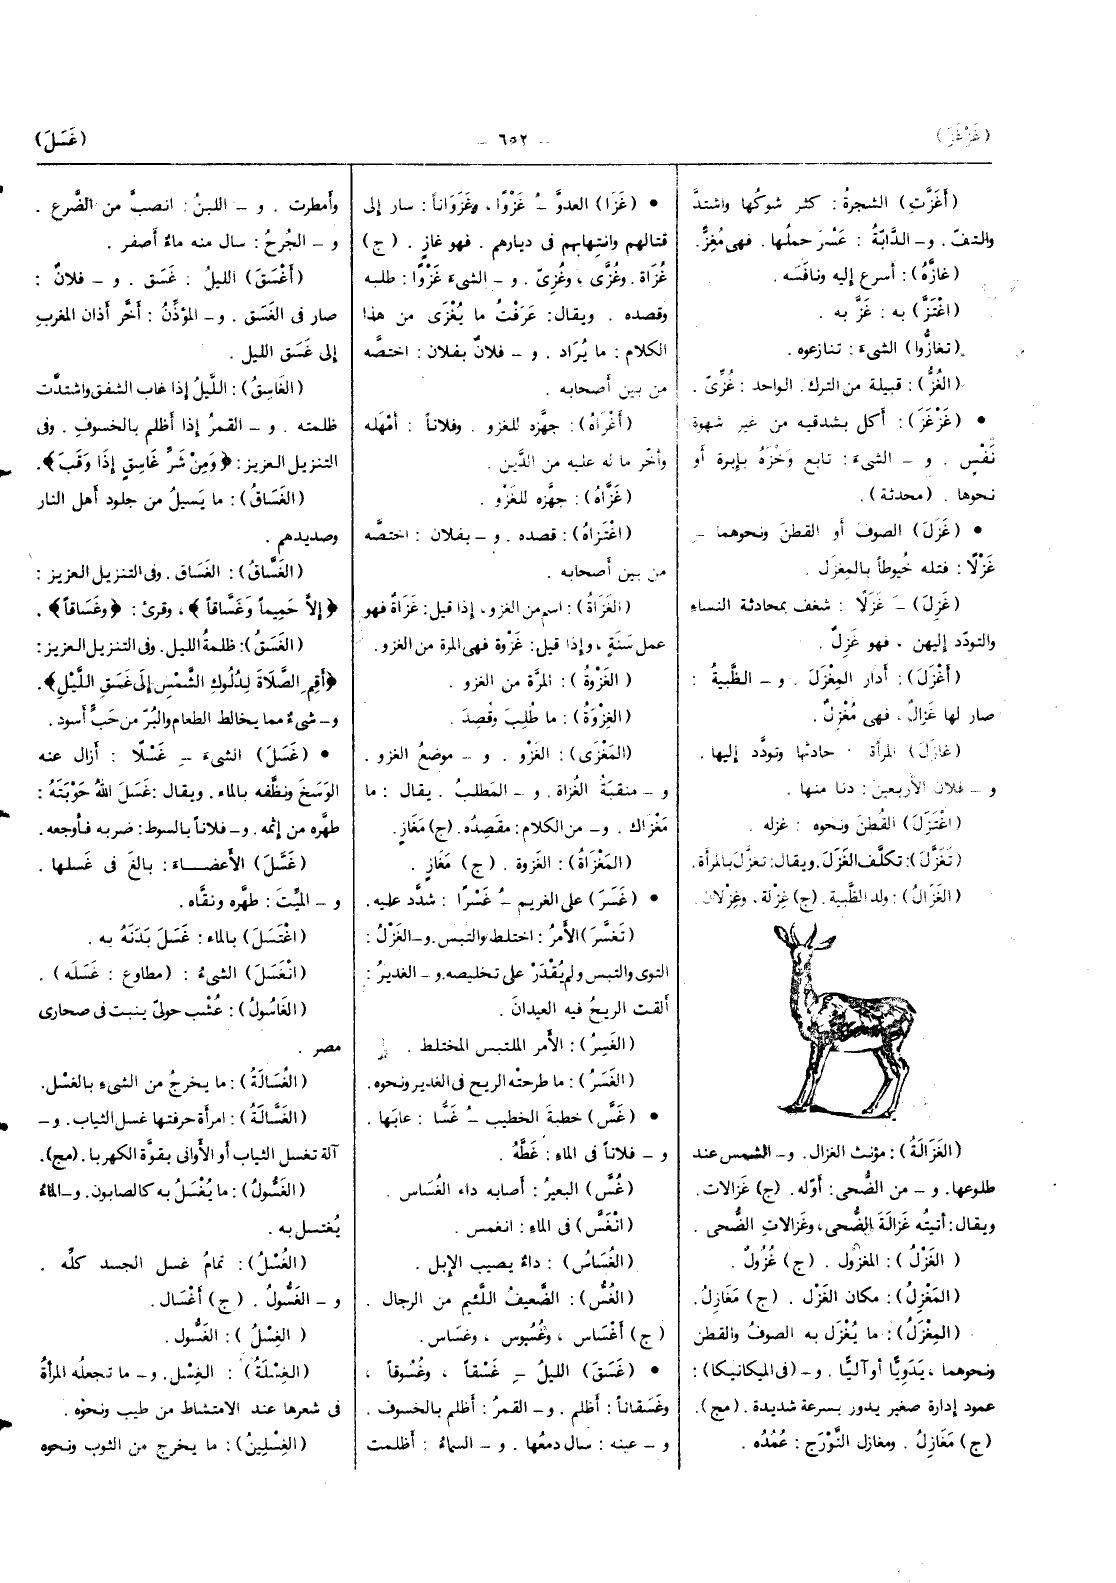 (غَزْغَزَ)
– ٦٥٢ –
(غَسَلَ)
(أَغَزَّتِ) الشجرةُ: كثر شوكُها واشتدَّ
والتفّ . و– الدَّابّةُ : عَسُرَ حملُها . فهى مُغِزٌّ.
(غازَّهُ) : أسرع إليه ونافَسَه .
(اغْتَزَّ) به : غَزَّ به .
(تغازُّوا) الشىءَ : تنازعوه.
(الغُزُّ) : قبيلة من الترك. الواحد : غُزِّىّ .
• (غَزْغَزَ) : أكل بشدقيه من غير شهوة
نَفْسٍ . و – الشىءَ : تابع وَخْزَهُ بإبرة أو
نحوها . (محدثة) .
• (غَزَلَ) الصوفَ أو القطنَ ونحوهما –ِ
غَزْلًا : فتله خُيوطاً بالمِغزَل .
(غَزِلَ) –َ غَزَلًا : شغف بمحادثة النساءِ
والتودّد إليهن ، فهو غَزِلٌ .
(أغْزَلَ) : أدار المِغْزَلَ . و – الظَّبيةُ :
صار لها غَزالٌ ، فهى مُغْزِلٌ .
(غازَلَ) المرأةَ : حادثها وتودَّد إليها .
و – فلان الأربعين : دنا منها .
(اغْتَزَلَ) القُطنَ ونحوه : غزله .
(تَغَزَّلَ) : تكلَّف الغَزَلَ. ويقال : تغزَّل بالمرأة.
(الغَزَالُ) : ولد الظَّبية . (ج) غِزْلة ، وغِزْلان .
(الغَزَالةُ) : مؤنث الغزال. و– الشمس عند
طلوعها. و – من الضُّحى : أوّله. (ج) غَزالات.
ويقال: أتيتُه غَزالَةَ الضُّحى، وغَزالاتِ الضُّحى .
(الغَزْلُ) : المغزول . (ج) غُزُولٌ.
(المَغْزِلُ) : مكان الغَزْل . (ج) مَغَازِلُ.
(المِغْزَلُ) : ما يُغْزَل به الصوفُ والقطن
ونحوهما ، يَدَوِيًّا أو آليًّا. و– (فى الميكانيكا) :
عمود إدارة صغير يدور بسرعة شديدة . (مج).
(ج) مَغَازِلُ . ومغازل النَّوْرَج : عُمُدُه .
• (غَزَا) العدوَّ –ُ غَزْوًا ، وغَزَوَاناً : سار إلى
قتالهم وانتهابهم فى ديارهم . فهو غازٍ . (ج)
غُزَاة . وغُزًّى ، وغُزِىّ . و – الشىءَ غَزْوًا : طلبه
وقصده . ويقال : عَرَفْتُ ما يُغْزَى من هذا
الكلام : ما يُرَاد . و – فلانٌ بفلان : اختصَّه
من بين أصحابه .
(أَغْزَاهُ) : جهَّزه للغزو . وفلاناً : أمْهَله
وأخّر ما له عليه من الدَّين .
(غَزَّاهُ) : جهَّزه للغَزْو .
(اغْتَزاهُ) : قصده . و – بفلان : اختصَّه
من بين أصحابه .
(الغَزَاةُ) : اسم من الغزو ، إذا قيل : غَزَاةٌ فهو
عمل سَنَةٍ ، وإذا قيل: غَزْوة فهى المرة من الغزو.
(الغَزْوةُ) : المرَّة من الغزو .
(الغِزْوَةُ) : ما طُلِبَ وقُصِدَ .
(المَغْزَى) : الغَزْو . و – موضعُ الغزو .
و – منقبةُ الغُزاة . و – المَطلبُ . يقال : ما
مَغْزاك . و– من الكلام: مقصِدُه. (ج) مَغَازٍ.
(المَغْزَاةُ) : الغَزوة . (ج) مَغَازٍ .
• (غَسَرَ) على الغريم –ُ غَسْرًا : شدَّد عليه.
(تَغسَّرَ) الأَمرُ : اختلط والتبس. و– الغَزْلُ :
التوى والتبس ولم يُقْدَرْ على تخليصه. و– الغديرُ :
ألقت الريحُ فيه العيدانَ .
(الغَسِرُ) : الأمر الملتبس المختلط .
(الغَسَرُ) : ما طرحتْه الريح فى الغدير ونحوه.
• (غَسَّ) خطبةَ الخطيب –ُ غَسًّا : عابَها .
و – فلاناً فى الماءِ : غَطَّهُ .
(غُسَّ) البعيرُ : أصابه داء الغُساس .
(انْغَسَّ) فى الماءِ : انغمس .
(الغُسَاسُ) : داءٌ يصيب الإبل .
(الغُسُّ) : الضَّعيفُ اللَّئيم من الرجال .
(ج) أغْسَاس ، وغُسُوس ، وغساس.
• (غَسَقَ) الليلُ –ِ غَسْقاً ، وغُسُوقاً ،
وغَسَقاناً : أظلم . و– القمرُ : أظلم بالخسوف .
و – عينه : سال دمعُها . و – السماءُ : أظلمت
وأمطرت . و – اللبنُ : انصبَّ من الضَّرع .
و – الجُرحُ : سال منه ماءٌ أصفر .
(أَغْسَقَ) الليلُ : غَسَق . و – فلانٌ :
صار فى الغَسَق . و– المؤذِّنُ : أخَّر أذان المغربِ
إلى غَسَق الليل .
(الغَاسِقُ) : اللَّيلُ إذا غاب الشفق واشتدَّت
ظلمته . و – القمرُ إذا أظلم بالخسوفِ . وفى
التنزيل العزيز : ﴿وَمِنْ شَرِّ غَاسِقٍ إِذَا وَقَبَ﴾.
(الغَسَاقُ) : ما يَسيلُ من جلود أهل النار
وصديدهم .
(الغَسَّاقُ) : الغَسَاق . وفى التنزيل العزيز :
﴿إِلاَّ حَمِيماً وَغَسَّاقاً﴾ ، وقرئ : ﴿وغَسَاقاً﴾ .
(الغَسَقُ) : ظلمةُ الليل. وفى التنزيل العزيز :
﴿أَقِمِ الصَّلَاةَ لِدُلُوكِ الشَّمْسِ إِلَى غَسَقِ اللَّيْلِ﴾.
و– شىءٌ مما يخالط الطعام والبُرّ من حَبٍّ أسود.
• (غَسَلَ) الشىءَ –ِ غَسْلًا : أزال عنه
الوَسَخَ ونظَّفه بالماءِ. ويقال : غَسَلَ اللهُ حَوْبَتَهُ :
طهَّره من إثمه. و– فلاناً بالسوط: ضربه فأوجعه.
(غَسَّلَ) الأعضاءَ : بالغ فى غسلها .
و – الميِّتَ : طهَّره ونقَّاه .
(اغْتَسَلَ) بالماءِ : غَسَلَ بَدَنَهُ به .
(انْغَسَلَ) الشىءُ : (مطاوع : غسَله) .
(الغَاسُولُ) : عُشْب حولىّ ينبت فى صحارى
مصر .
(الغُسَالَةُ) : ما يخرجُ من الشىءِ بالغَسْل.
(الغَسَّالَةُ) : امرأة حرفتها غسل الثياب . و –
آلة تغسل الثياب أو الأوانى بقوَّة الكهربا. (مج).
(الغَسُولُ) : ما يُغْسَلُ به كالصابون. و– الماءُ
يُغتسل به .
(الغُسْلُ) : تمامُ غسل الجسد كلِّه .
و – الغَسُّولُ . (ج) أَغْسَال.
(الغِسْلُ) : الغَسُّول.
(الغِسْلَةُ) : الغِسْل. و– ما تجعله المرأةُ
فى شعرها عند الامتشاط من طيب ونحوه .
(الغِسْلِينُ) : ما يخرج من الثوب ونحوه